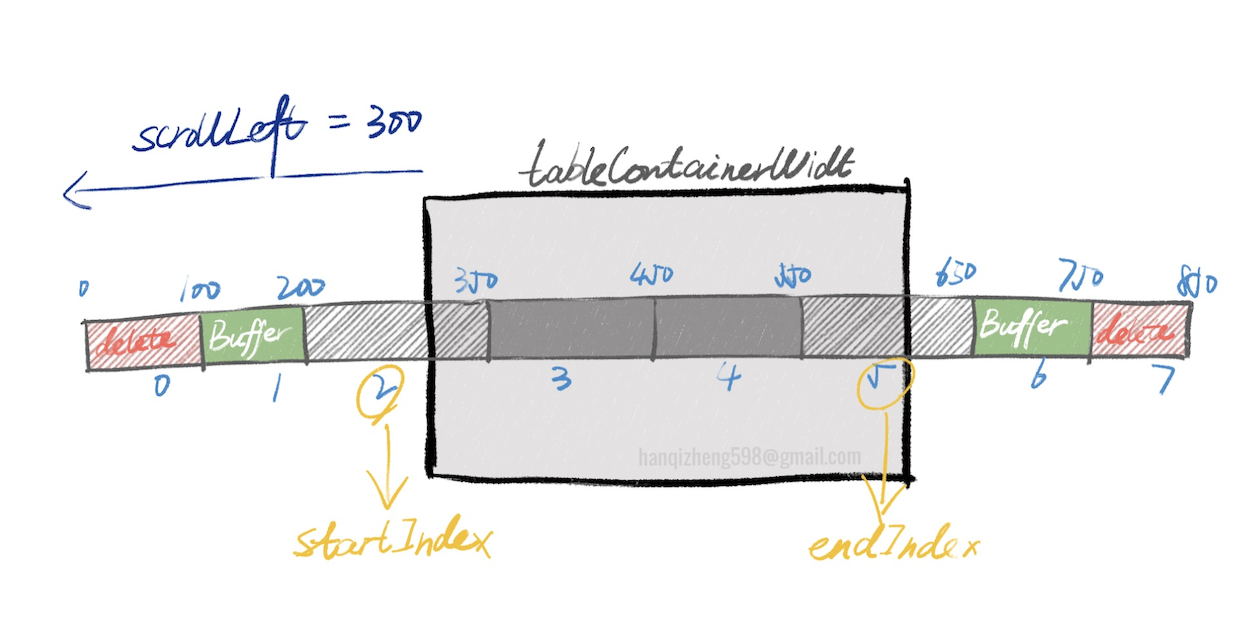 scrollLeft = 300
tableContainerWidt
0 100 200 350 450 550 650 750 850
delete Buffer Buffer delete
0 1 2 3 4 5 6 7
hanqizheng598@gmail.com
startIndex endIndex